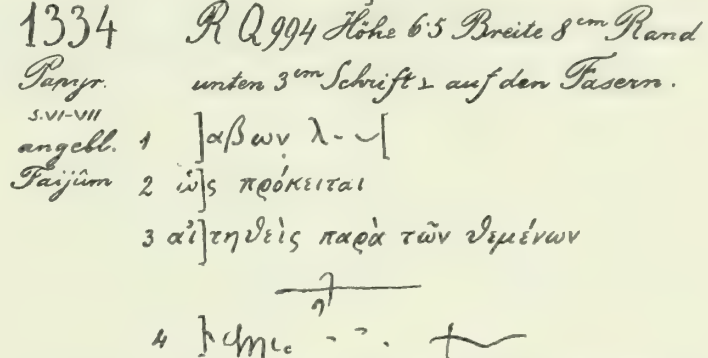 1334 R Q 994 Höhe 6·5 Breite 8 cm Rand
Papyr. unten 3 cm Schrift ⊥ auf den Fasern.
S.VI-VII
angebl. 1 ]αβων λ-
Faijûm 2 ὡ]ς πρόκειται
3 αἰ]τηθεὶς παρὰ τῶν θεμένων
4